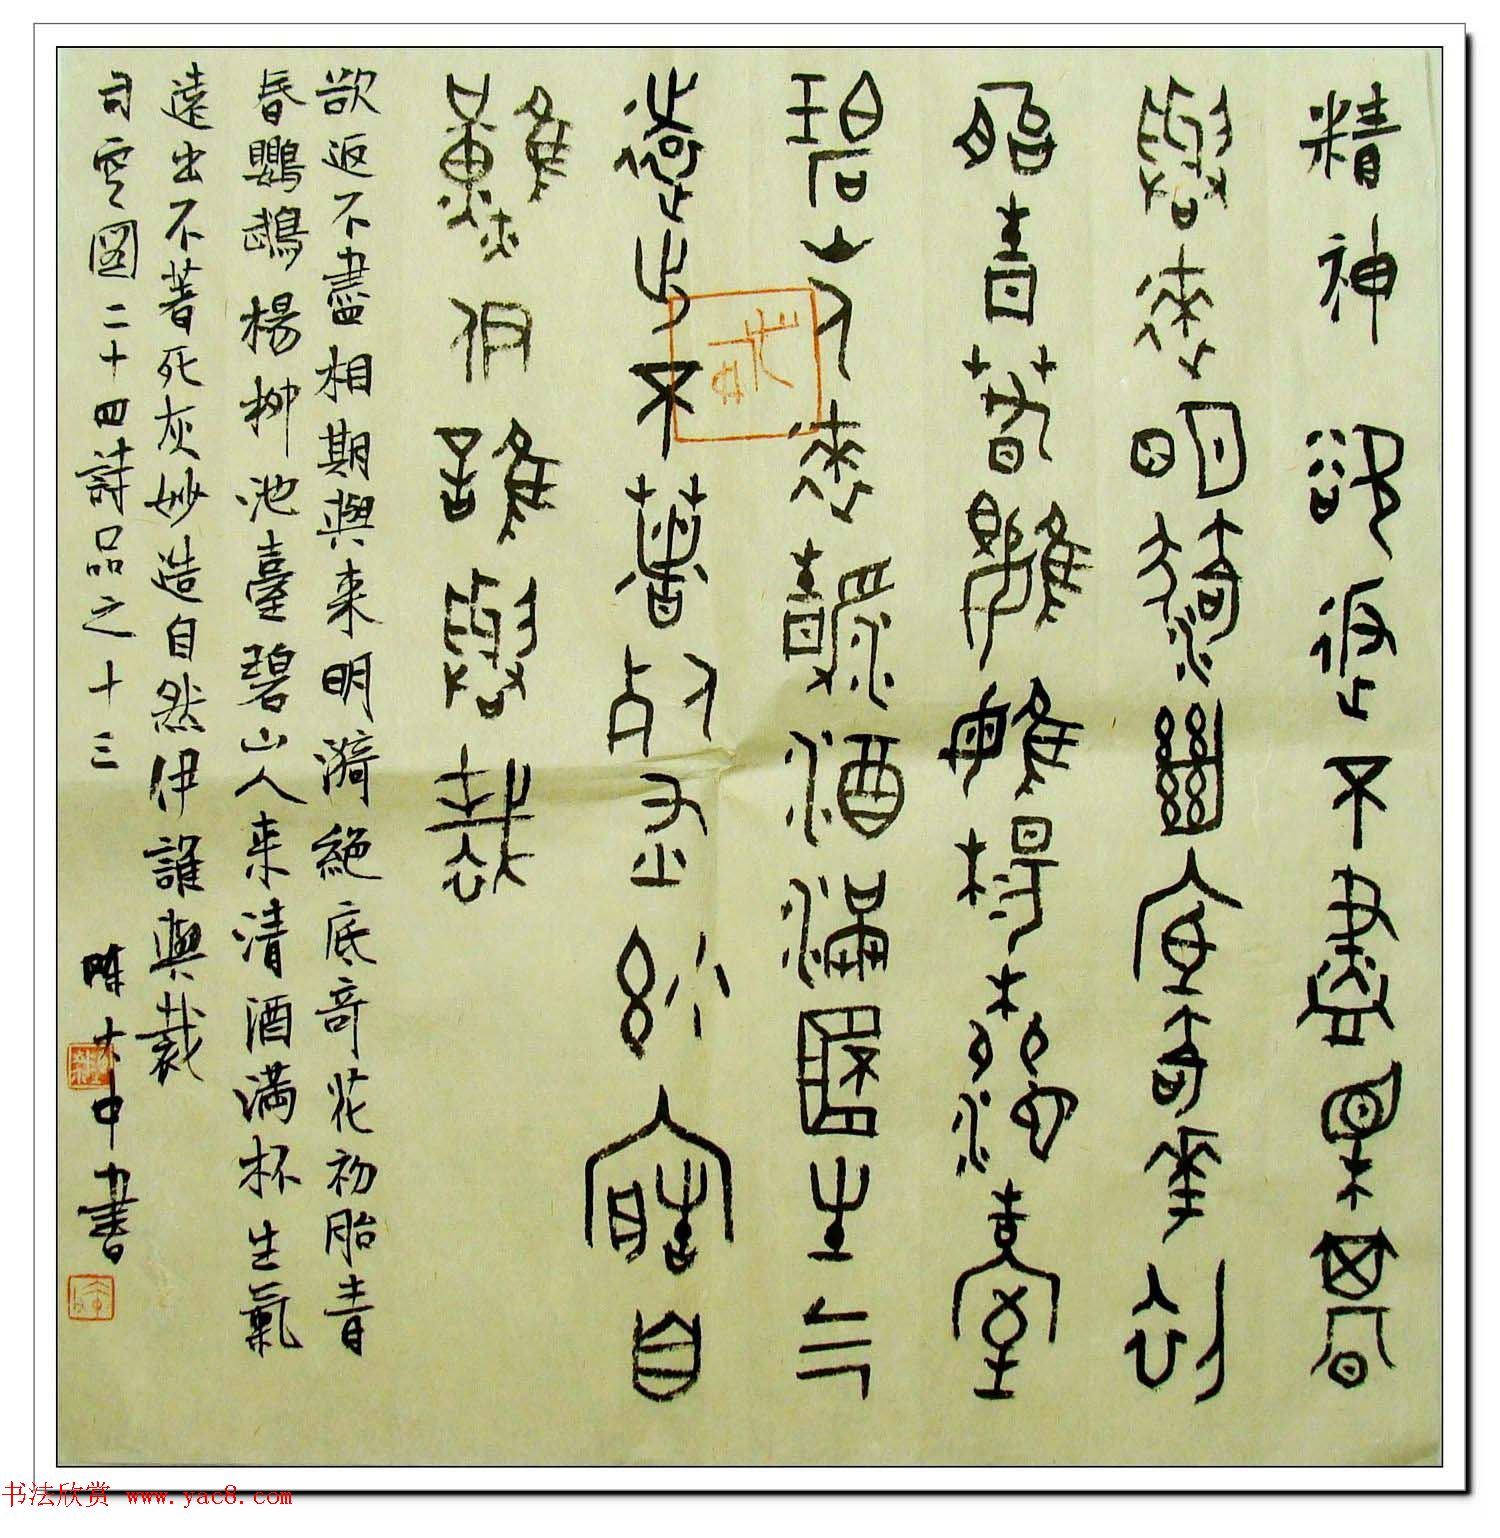 精神欲返不盡相期
與來明漪絕底奇華初
胎青春鸚鵡楊柳池臺
碧山人來清酒滿杯生气
遠出不著死灰妙造自
然伊誰與裁
欲返不盡相期與来明漪絕底奇花初胎青
春鸚鵡楊柳池臺碧山人来清酒满杯生氣
遠出不著死灰妙造自然伊誰與裁
司空图二十四詩品之十三 陈大中書
书法欣赏 www.yac8.com